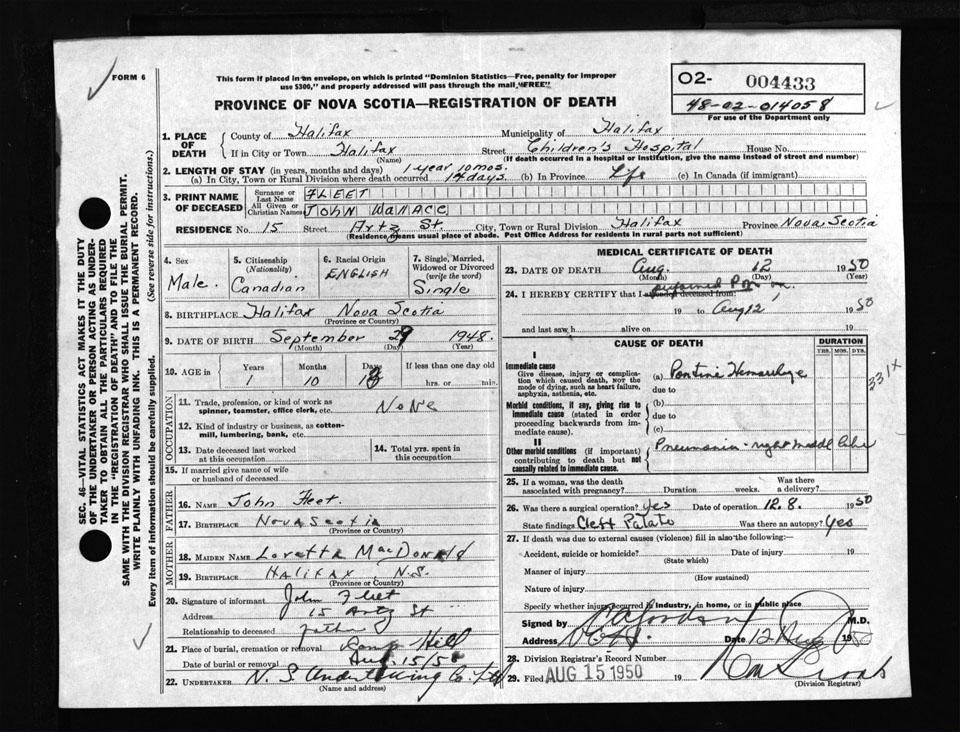 FORM 6
This form if placed in an envelope, on which is printed "Dominion Statistics—Free, penalty for improper
use $300," and properly addressed will pass through the mail "FREE"
O2- 004433
48-02-014058
For use of the Department only
PROVINCE OF NOVA SCOTIA—REGISTRATION OF DEATH
1. PLACE OF DEATH
County of Halifax Municipality of Halifax
If in City or Town Halifax Street Children's Hospital House No.
(Name) (If death occurred in a hospital or institution, give the name instead of street and number)
2. LENGTH OF STAY (in years, months and days) 1 year 10 mos.
(a) In City, Town or Rural Division where death occurred 14 days (b) In Province Life (c) In Canada (if immigrant)
3. PRINT NAME OF DECEASED
Surname or Last Name FLEET
All Given or Christian Names JOHN WALLACE
RESIDENCE No. 15 Street Artz St. City, Town or Rural Division Halifax Province Nova Scotia
(Residence means usual place of abode. Post Office Address for residents in rural parts not sufficient)
4. Sex Male.
5. Citizenship (Nationality) Canadian
6. Racial Origin ENGLISH
7. Single, Married, Widowed or Divorced (write the word) Single
8. BIRTHPLACE Halifax Nova Scotia
(Province or Country)
9. DATE OF BIRTH September 29 1948.
(Month) (Day) (Year)
10. AGE in Years Months Days If less than one day old
1 10 18 hrs. or min.
OCCUPATION
11. Trade, profession, or kind of work as spinner, teamster, office clerk, etc. None
12. Kind of industry or business, as cotton-mill, lumbering, bank, etc.
13. Date deceased last worked at this occupation
14. Total yrs. spent in this occupation
15. If married give name of wife or husband of deceased
FATHER
16. NAME John Fleet.
17. BIRTHPLACE Nova Scotia
(Province or Country)
MOTHER
18. MAIDEN NAME Loretta MacDonald
19. BIRTHPLACE HALIFAX N.S.
(Province or Country)
20. Signature of informant John Fleet
Address 15 Artz St
Relationship to deceased Father
21. Place of burial, cremation or removal Camp Hill
Date of burial or removal Aug 15/50
22. UNDERTAKER N. S. Undertaking Co. Ltd
(Name and address)
MEDICAL CERTIFICATE OF DEATH
23. DATE OF DEATH Aug. 12 1950
(Month) (Day) (Year)
24. I HEREBY CERTIFY that I attended deceased from: performed on
19 to Aug 12 1950
and last saw h alive on 19
CAUSE OF DEATH
DURATION
YRS. MOS. DYS.
I
Immediate cause
Give disease, injury or complication which caused death, NOT the mode of dying, such as heart failure, asphyxia, asthenia, etc.
(a) Pontine Hemorrhage
331X
due to
Morbid conditions, if any, giving rise to immediate cause (stated in order proceeding backwards from immediate cause).
(b)
due to
(c)
II
Other morbid conditions (if important) contributing to death but not causally related to immediate cause.
Pneumonia - right middle lobe
25. If a woman, was the death associated with pregnancy? Duration weeks. Was there a delivery?
26. Was there a surgical operation? Yes Date of operation 12.8. 1950
State findings Cleft Palate Was there an autopsy? Yes
27. If death was due to external causes (violence) fill in also the following:—
Accident, suicide or homicide? Date of injury 19
(State which)
Manner of injury
(How sustained)
Nature of injury
Specify whether injury occurred in industry, in home, or in public place
Signed by M.D.
Address Date 12 Aug 1950
28. Division Registrar's Record Number
29. Filed AUG 15 1950 19
(Division Registrar)
SEC. 46—VITAL STATISTICS ACT MAKES IT THE DUTY
OF THE UNDERTAKER OR PERSON ACTING AS UNDER-
TAKER TO OBTAIN ALL THE PARTICULARS REQUIRED
IN THE "REGISTRATION OF DEATH" AND TO FILE THE
SAME WITH THE DIVISION REGISTRAR WHO SHALL ISSUE THE BURIAL PERMIT.
WRITE PLAINLY WITH UNFADING INK. THIS IS A PERMANENT RECORD.
Every item of information should be carefully supplied. (See reverse side for instructions.)